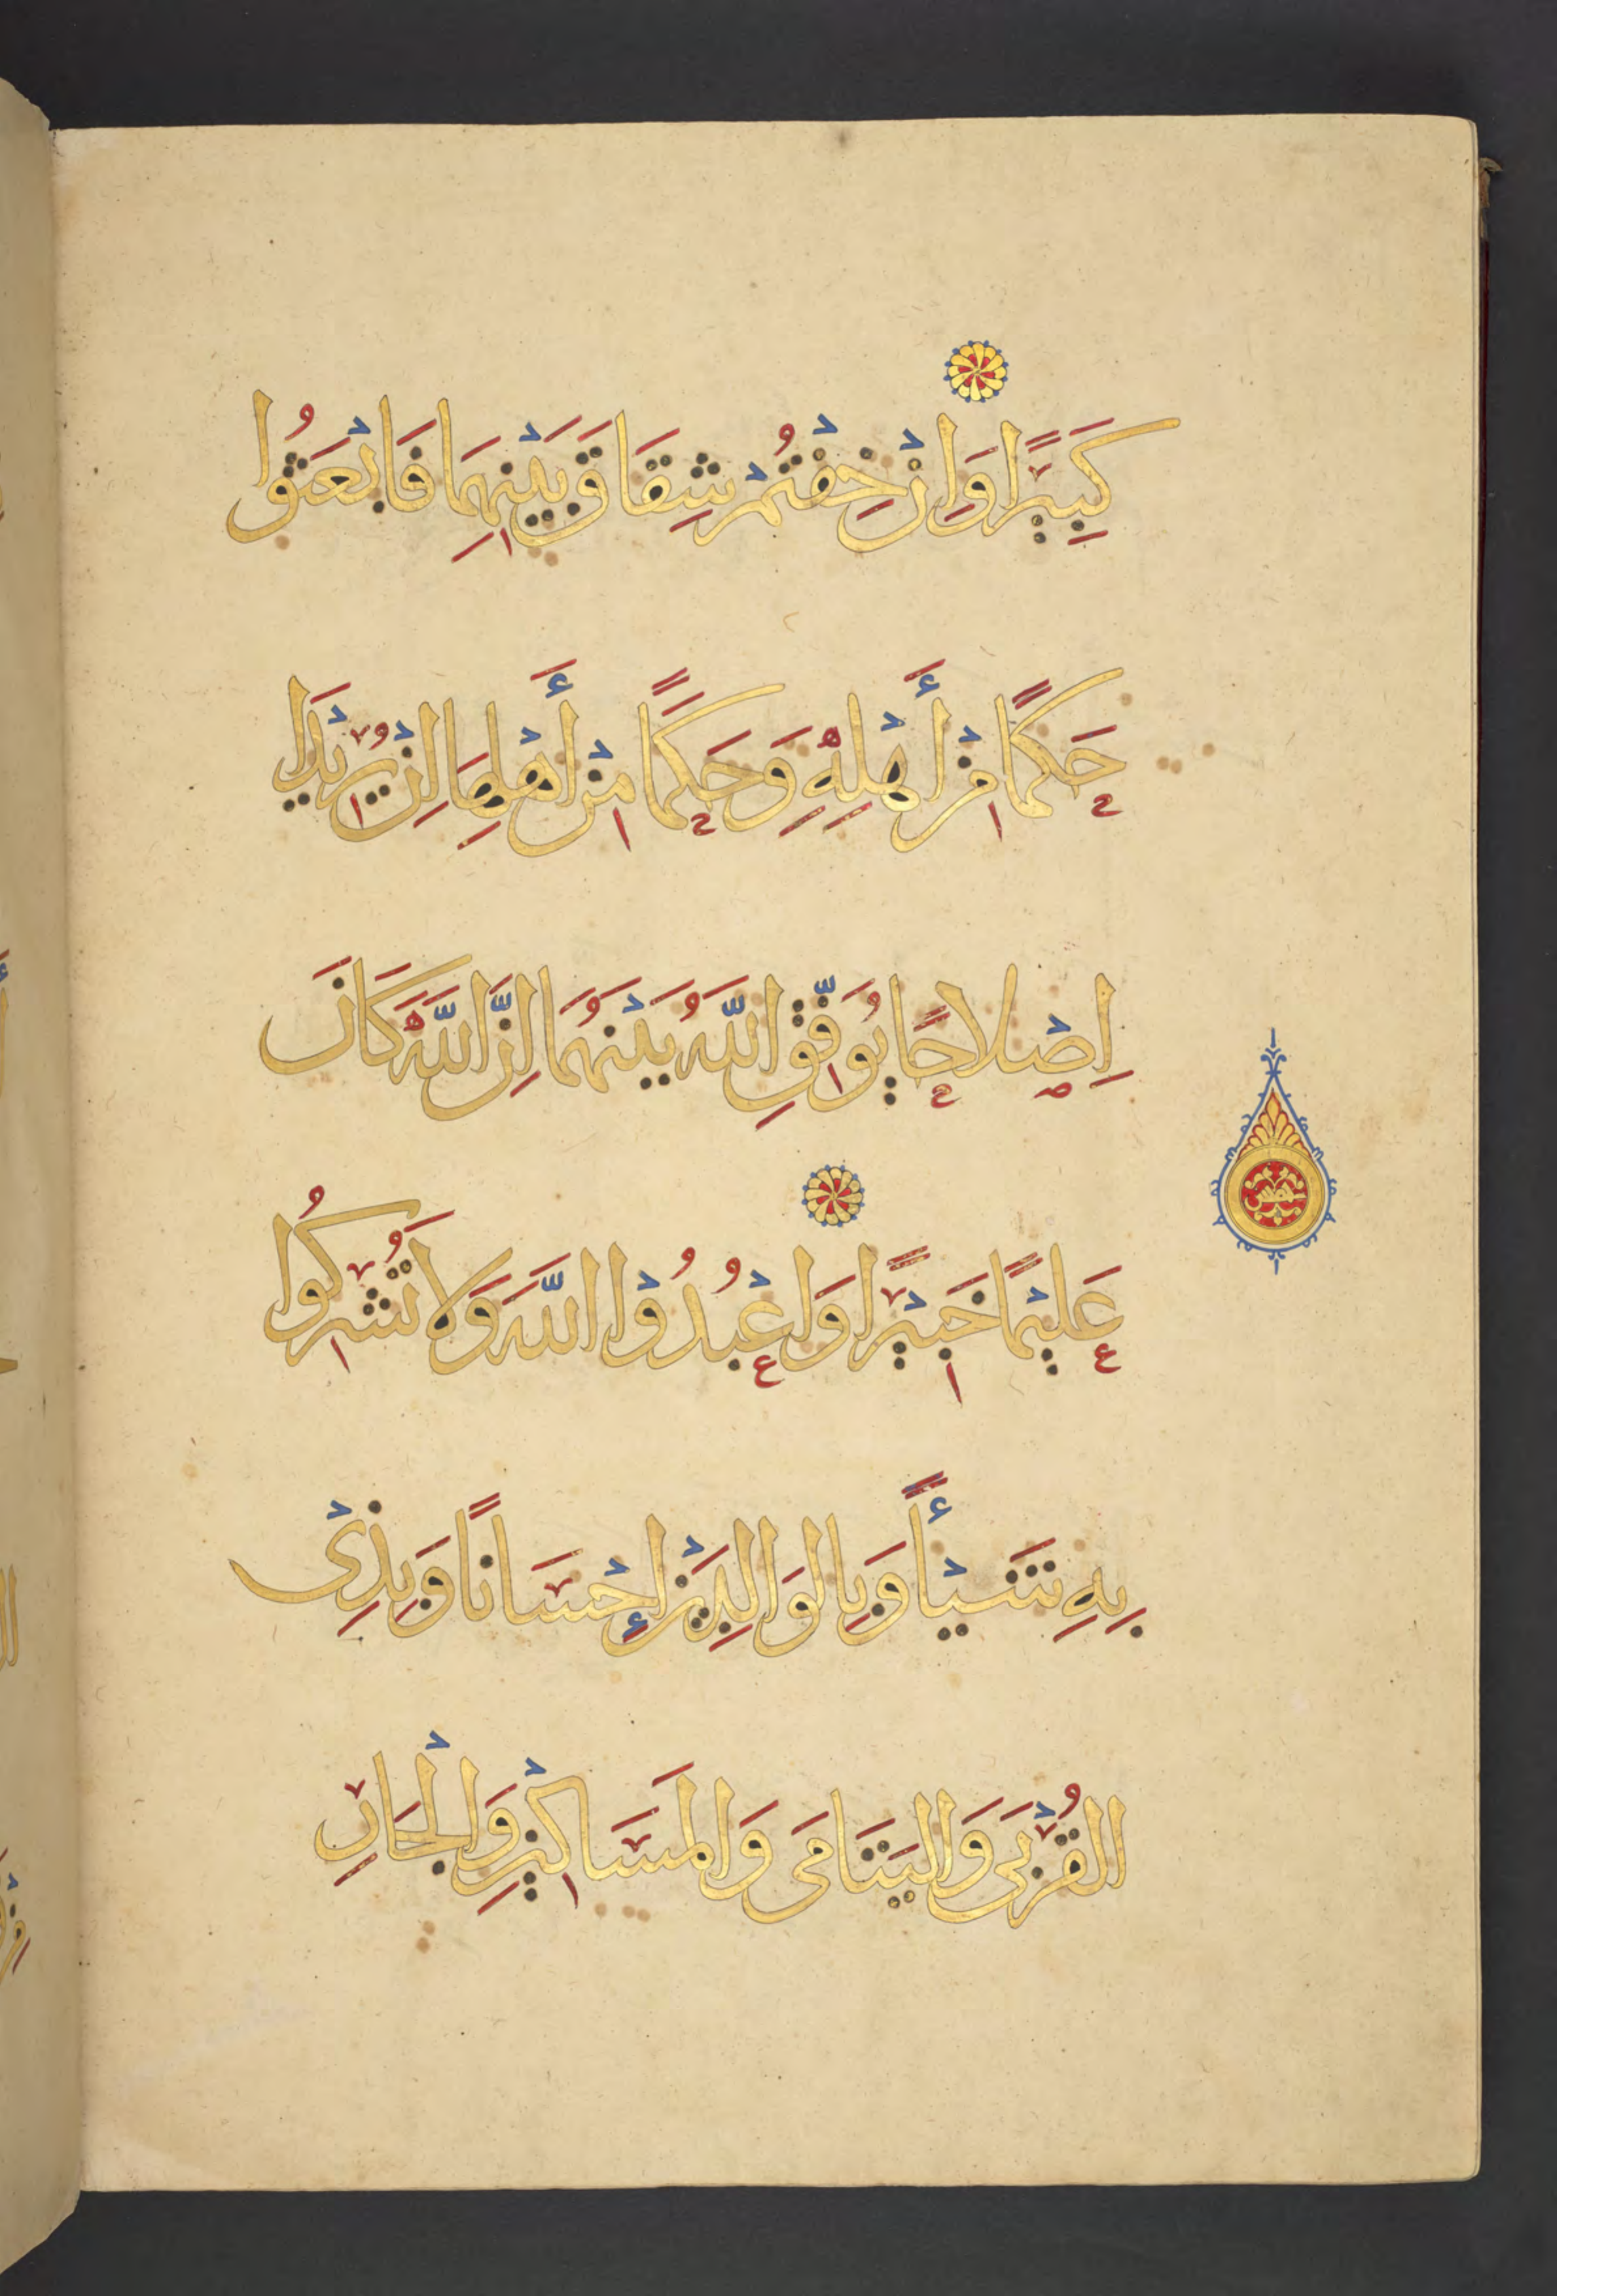 كَبِيرًا وَاِنْ خِفْتُمْ شِقَاقَ بَيْنِهِمَا فَابْعَثُوا
حَكَمًا مِنْ أَهْلِهِ وَحَكَمًا مِنْ أَهْلِهَا اِنْ يُرِيْدَا
اِصْلَاحًا يُوَفِّقِ اللَّهُ بَيْنَهُمَا اِنَّ اللَّهَ كَانَ
عَلِيْمًا خَبِيْرًا وَاعْبُدُوْا اللَّهَ وَلَا تُشْرِكُوا
بِهِ شَيْأً وَبِالوَالِدَيْنِ إِحْسَانًا وَبِذِىْ
القُرْبَى وَاليَتَامَى وَالمَسَاكِيْنِ وَالْجَارِ
خمس